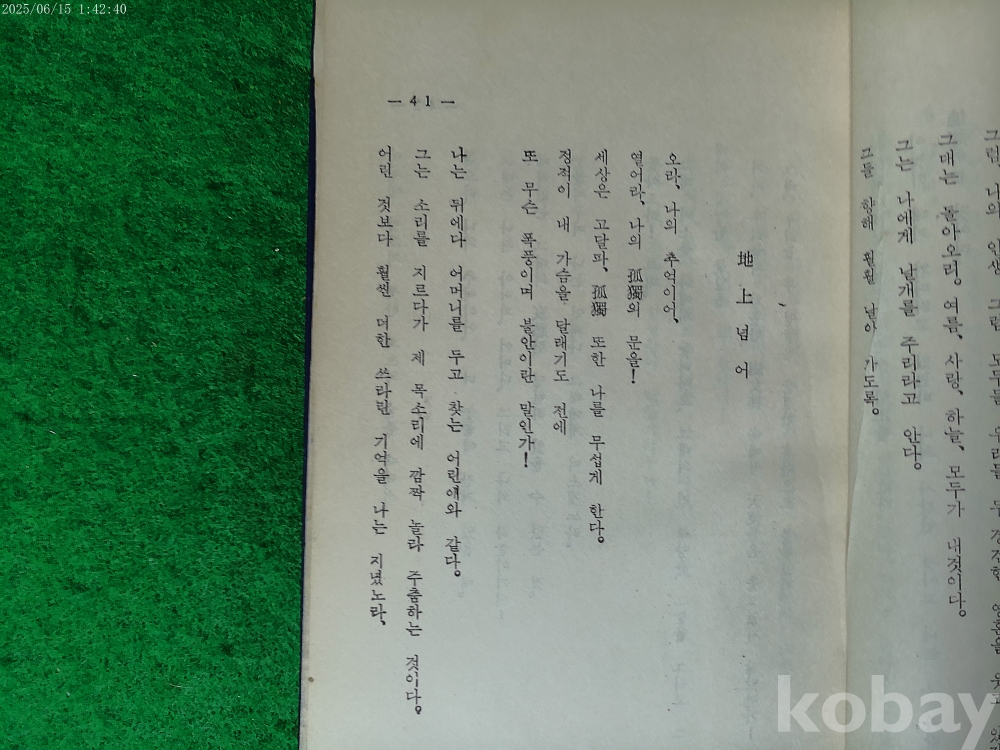 2025/06/15 1:42:40
그대는 돌아오리. 여름, 사랑, 하늘, 모두가
그는 나에게 날개를 주리라고 안다.
그들 향해 훨훨 날아 가도록.
地上념어
오라, 나의 추억이어,
열어라, 나의 孤獨의 문을!
세상은 고달파, 孤獨 또한 나를 무섭게 한다.
정적이 내 가슴을 달래기도 전에
또 무슨 폭풍이며 불안이란 말인가!
나는 뒤에다 어머니를 두고 찾는 어린애와 같다.
그는 소리를 지르다가 제 목소리에 깜짝 놀라 주춤하는 것이다.
어린 것보다 훨씬 더한 쓰라린 기억을 나는 지녔노라,
— 41 —
kobay